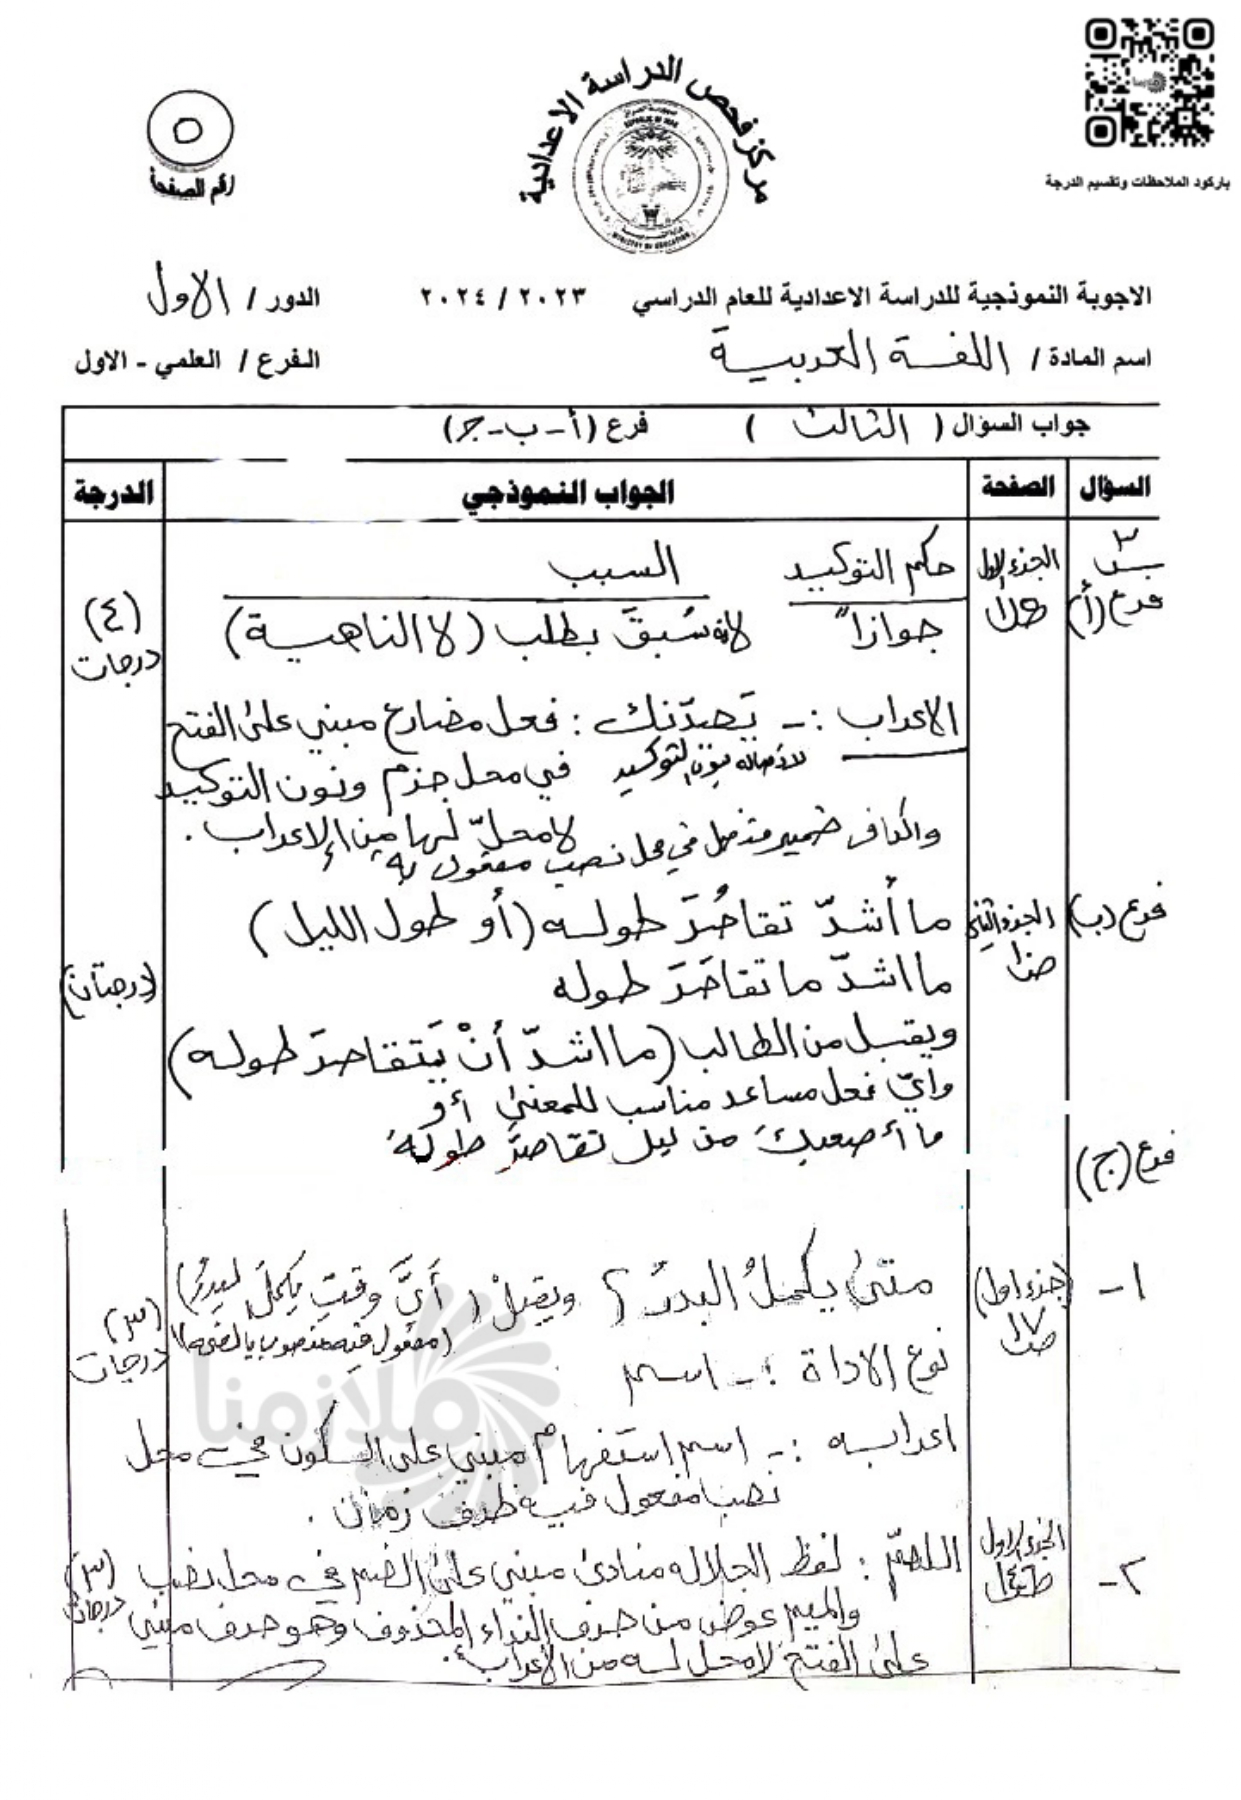 باركود الملاحظات وتقسيم الدرجة
مركز فحص الدراسة الاعدادية
REPUBLIC OF IRAQ
MINISTRY OF EDUCATION
٥
رقم الصفحة
الاجوبة النموذجية للدراسة الاعدادية للعام الدراسي ٢٠٢٣ / ٢٠٢٤ الدور / الاول
اسم المادة / اللغة العربية الفرع / العلمي - الاول
جواب السؤال ( الثالث ) فرع (أ - ب - ج)
السؤال الصفحة الجواب النموذجي الدرجة
س٣ الجزء الاول حكم التوكيد السبب
فرع (أ) جوازاً لأنه سُبقَ بطلب (لا الناهية) (٤) درجات
الاعراب :- يَصدّنك : فعل مضارع مبني على الفتح
لاتصاله بنون التوكيد في محل جزم ونون التوكيد
لا محلّ لها من الإعراب .
والكاف ضمير متصل في محل نصب مفعول به
فرع (ب) الجزء الثاني ما أشدّ تقاصُرَ طوله (أو طول الليل)
ما اشدّ ما تقاصَرَ طوله (درجتان)
ويقبل من الطالب (ما اشدّ أنْ يَتقاصرَ طوله)
وايّ فعل مساعد مناسب للمعنى أو
ما أصعبك من ليل تقاصرَ طوله
فرع (ج)
١- (جزء اول) متى يكملُ البدرُ ؟ ويقبلْ (أيَّ وقتٍ يكملُ البدرُ) (٣) درجات
(مفعول فيه منصوب بالفتحة)
نوع الاداة :- اسم
اعرابه :- اسم استفهام مبني على السكون في محل
نصب مفعول فيه ظرف زمان .
٢- الجزء الاول اللهمّ : لفظ الجلاله منادى مبني على الضم في محل نصب (٣) درجات
والميم عوض من حرف النداء المحذوف وهو حرف مبني
على الفتح لا محل له من الاعراب .
ملازمنا